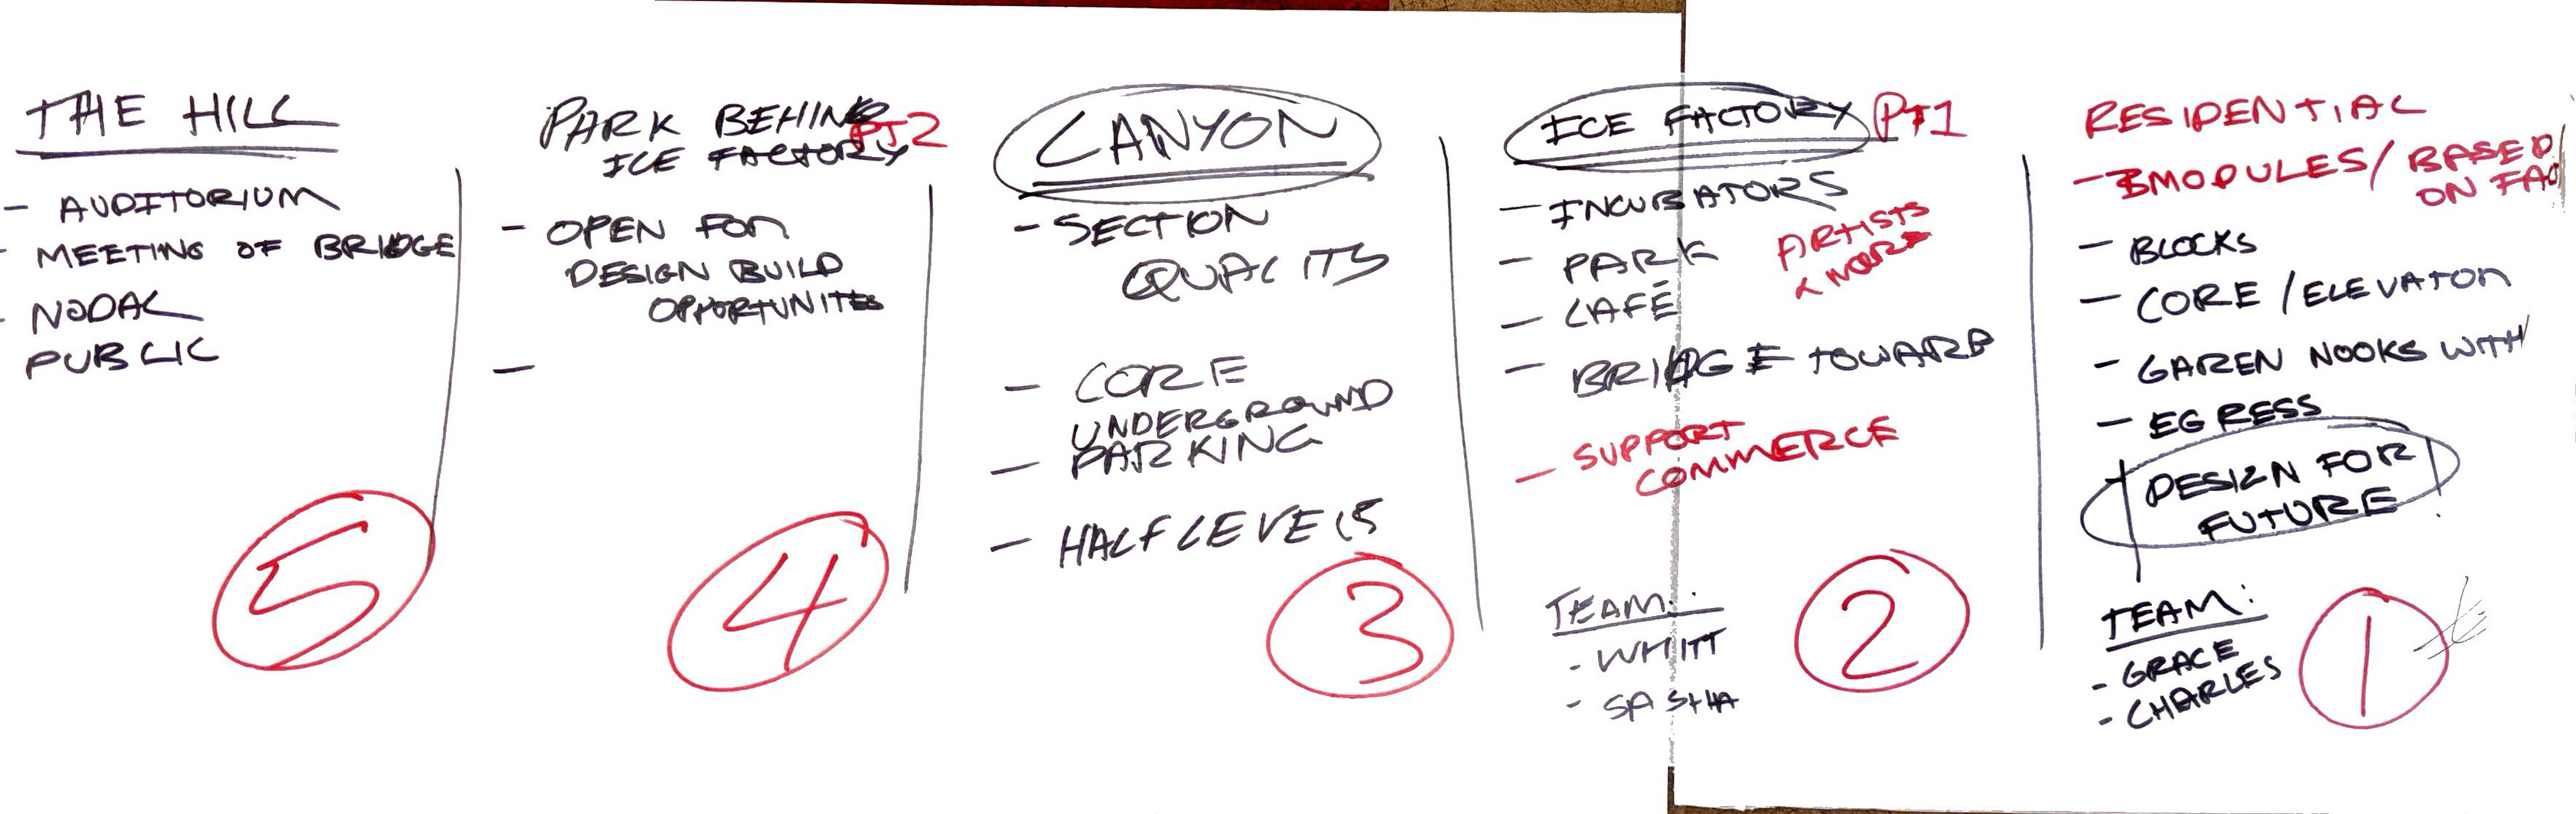 THE HILL
- AUDITORIUM
- MEETING OF BRIDGE
- NODAL
PUBLIC
5
PARK BEHIND
ICE FACTORY
PT2
- OPEN FOR
DESIGN BUILD
OPPORTUNITES
-
4
CANYON
- SECTION
QUALITY
- CORE
UNDERGROUND
- PARKING
- HALF LEVELS
3
ICE FACTORY PT1
- INCUBATORS
- PARK
- CAFÉ
ARTISTS
- BRIDGE TOWARD
- SUPPORT
COMMERCE
TEAM:
- WHITT
- SASHA
2
RESIDENTIAL
- BMODULES/ BASED
ON
- BLOCKS
- CORE / ELEVATOR
- GAREN NOOKS WITH
- EGRESS
DESIGN FOR
FUTURE
TEAM:
- GRACE
- CHARLES
1